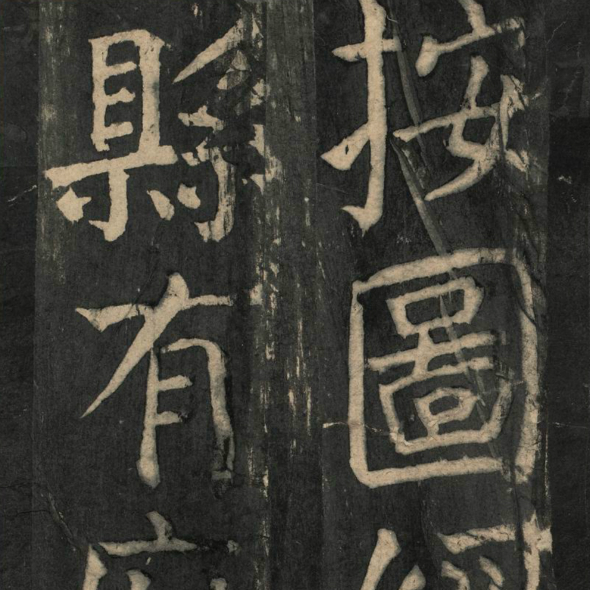 按圖
縣有